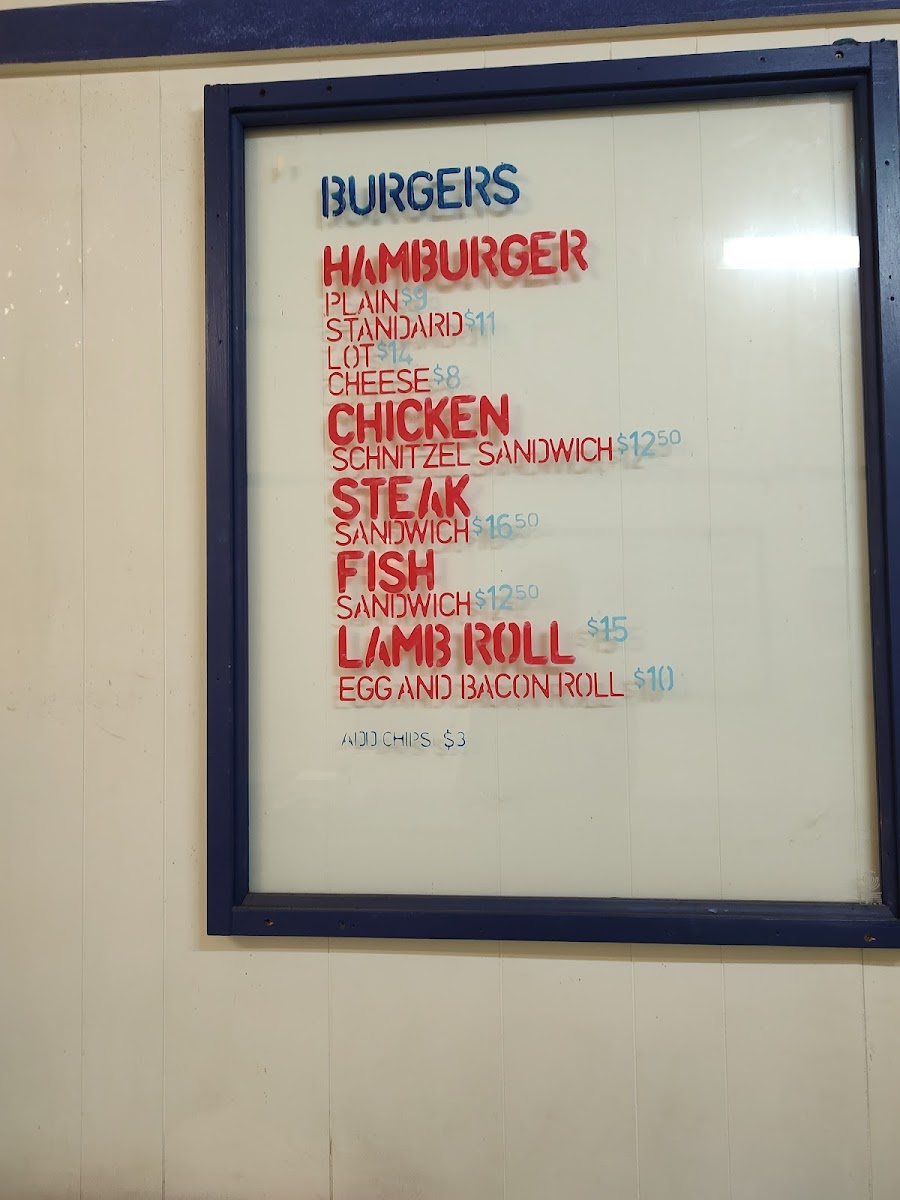 BURGERS
HAMBURGER
PLAIN $9
STANDARD $11
LOT $14
CHEESE $8
CHICKEN
SCHNITZEL SANDWICH $12 50
STEAK
SANDWICH $16 50
FISH
SANDWICH $12 50
LAMB ROLL $15
EGG AND BACON ROLL $10
ADD CHIPS $3